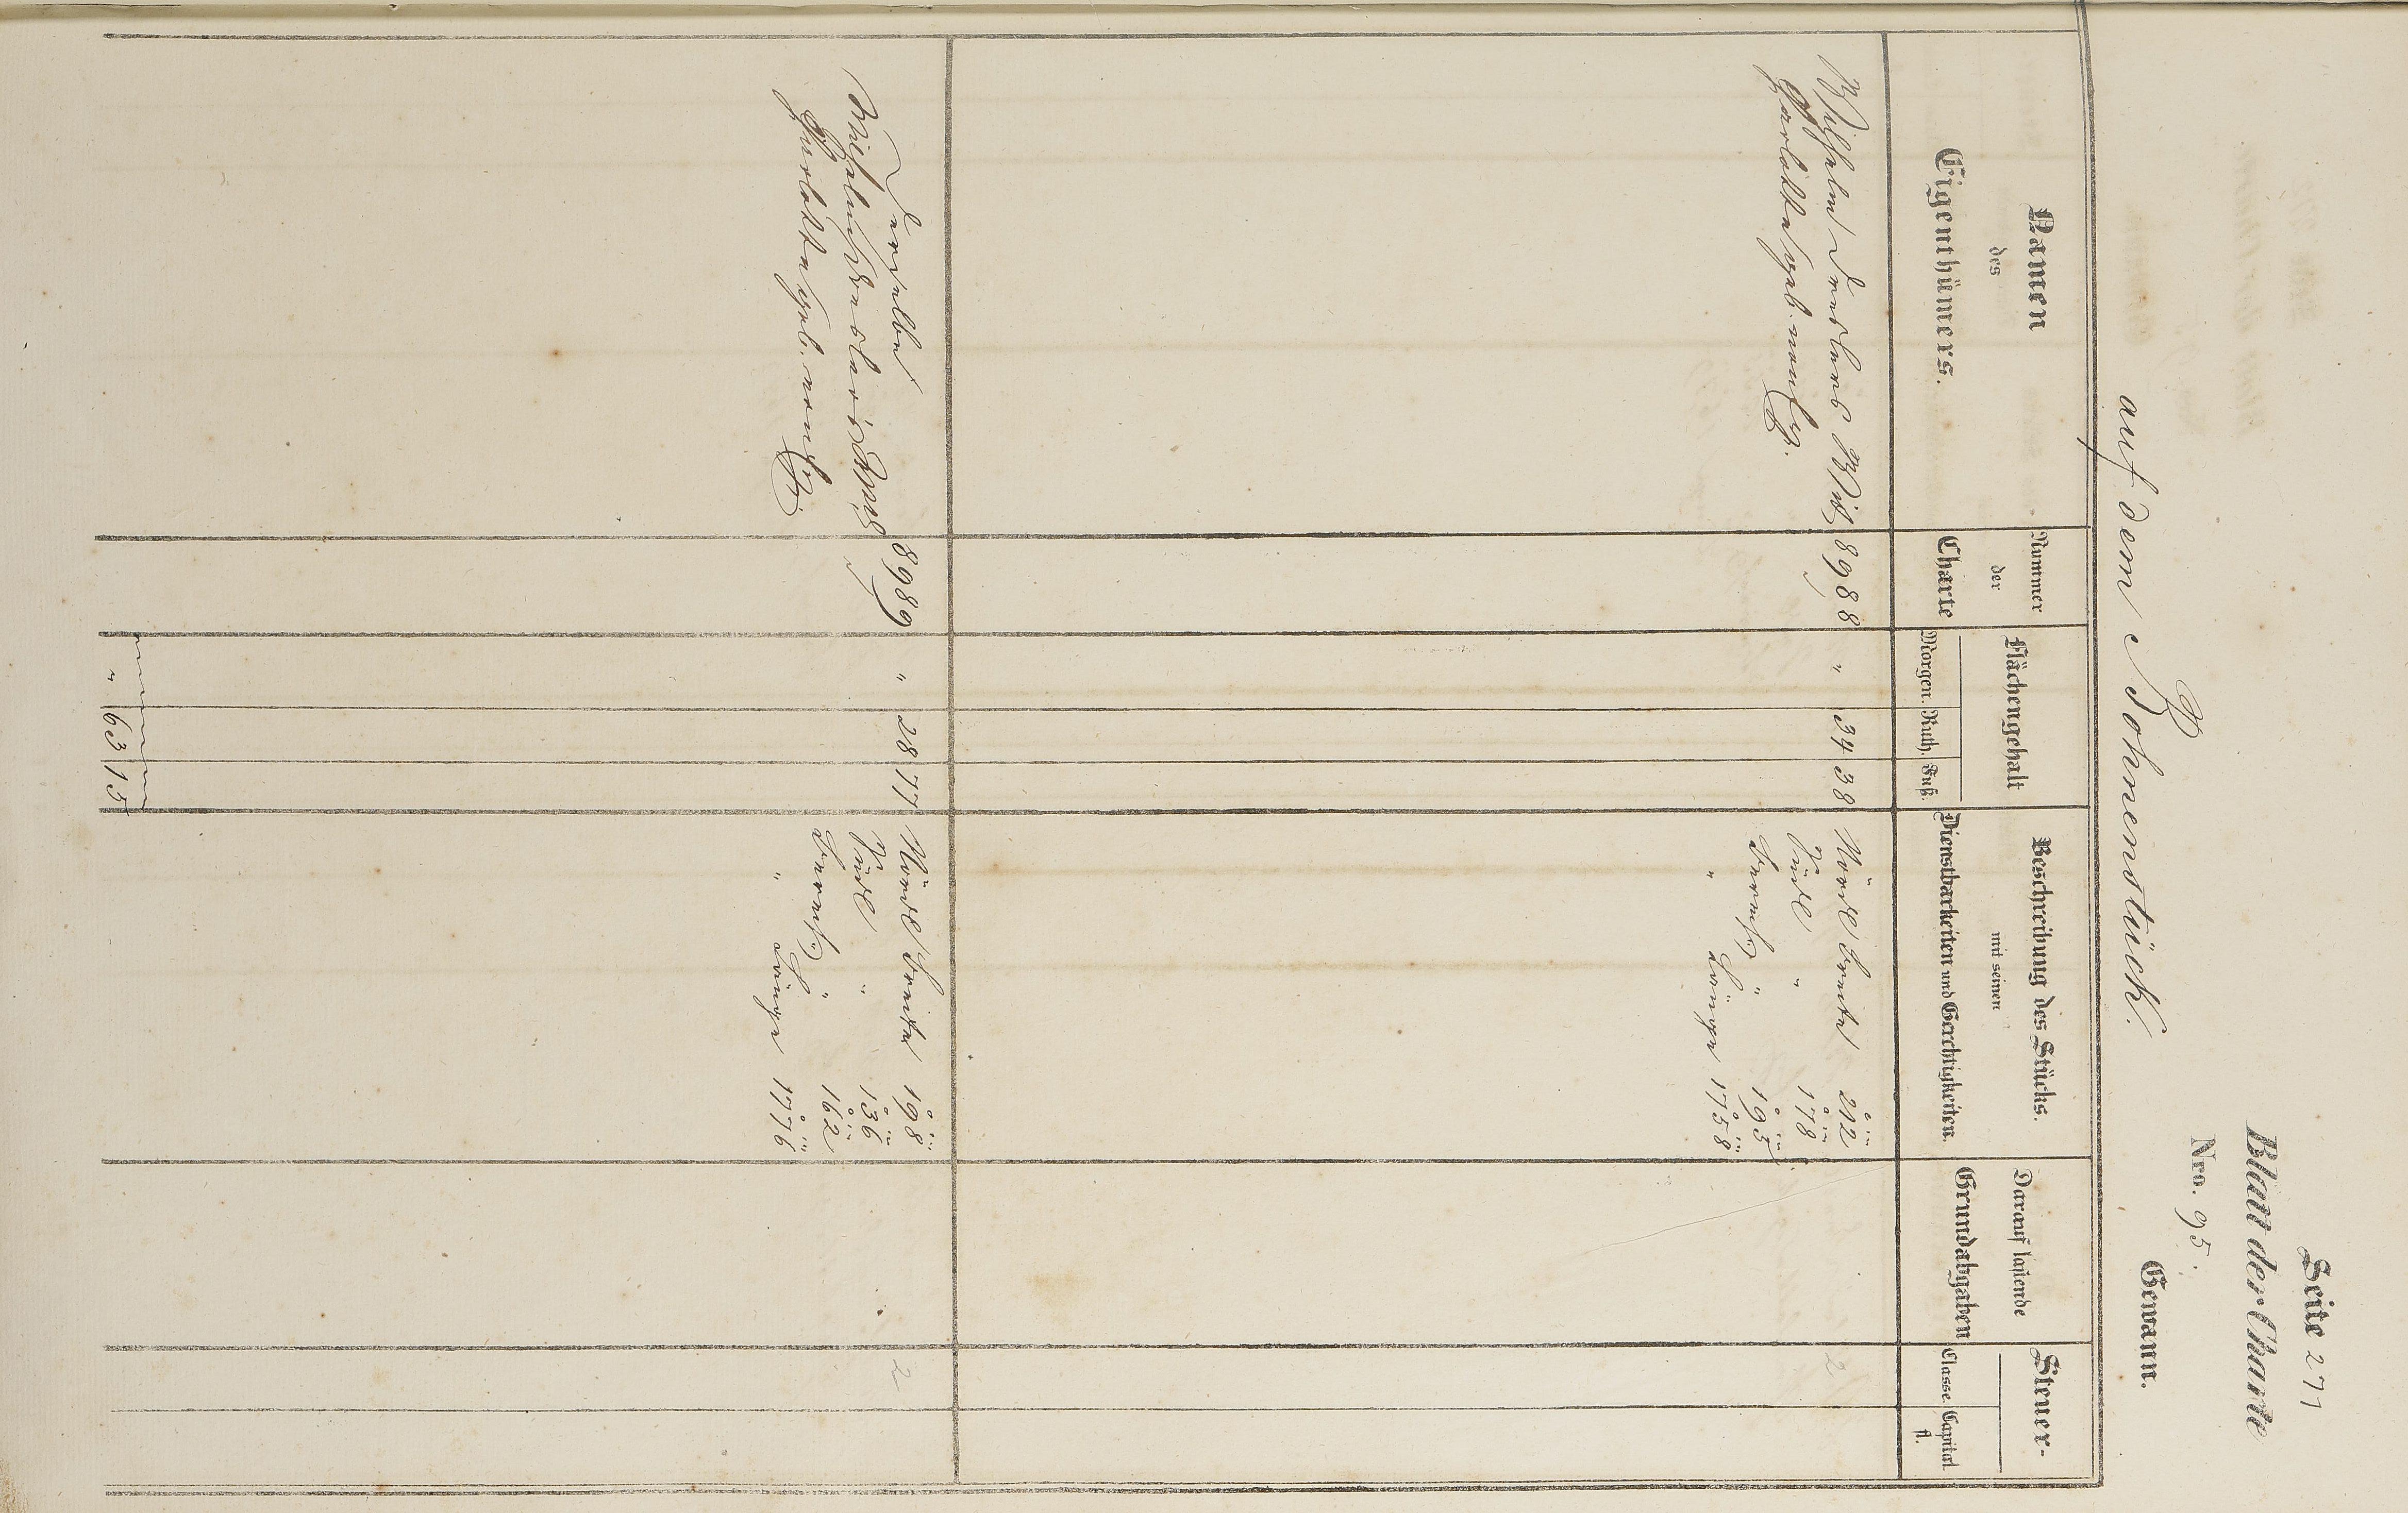 Seite 277
Blan der Charte
Nro. 95.
auf dem Bohnenstück. Gewann.
Namen
des
Eigenthümers.
Nummer
der
Charte
Flächengehalt
Morgen. Ruth. Fuß.
Beschreibung des Stücks
mit seinen
Dienstbarkeiten und Gerechtigkeiten.
Darauf lastende
Grundabgaben
Steuer-
Classe. Capital.
fl.
Wilhelm 8988 " 34 38 Nördl Breite 212 2
Südl " 178
Berentz " 195
" Länge 1758
Derselbe 8989 " 28 77 Nördl Breite 198 2
Südl " 136
Berentz " 162
" Länge 1776
" 63 15